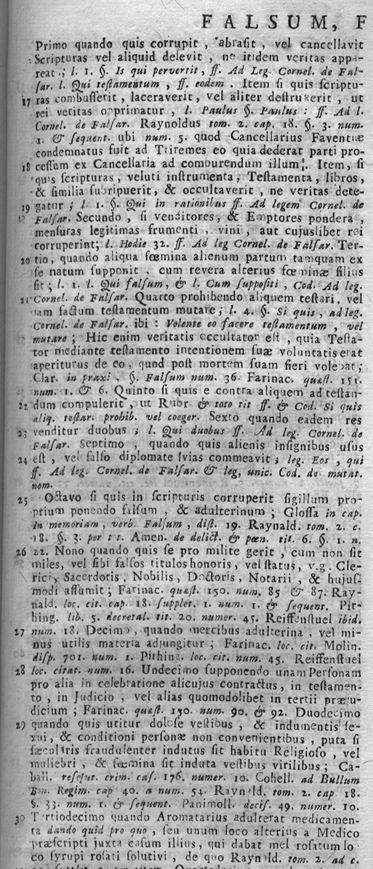 FALSUM, F
Primo quando quis corrupit, abrasit, vel cancellavit
Scripturas vel aliquid delevit, ne itidem veritas appa-
reat.; l. 1. §. Is qui pervertit, ff. Ad Leg. Cornel. de Fal-
sar. l. Qui testamentum, ff. eodem. Item si quis scriptu-
17 ras combusserit, laceraverit, vel aliter destruxerit, ut
rei veritas opprimatur, l. Paulus §. Paulus: ff. Ad l.
Cornel. de Falsar. Raynoldus tom. 2. cap. 18. §. 3. num.
1. & sequent. ubi num. 5. quod Cancellarius Faventiæ
condemnatus fuit ad Triremes eo quia dederat parti pro-
18 cessum ex Cancellaria ad comburendum illum. Item, si
quis scripturas, veluti instrumenta, Testamenta, libros,
& similia subripuerit, & occultaverit, ne veritas dete-
19 gatur; l. 1. §. Qui in rationibus ff. Ad legem Cornel. de
Falsar. Secundo, si venditores, & Emptores pondera,
mensuras legitimas frumenti, vini, aut cujuslibet rei
corruperint; l. Hodie 32. ff. Ad leg Cornel. de Falsar. Ter-
20 tio, quando aliqua fœmina alienum partum tamquam ex
se natum supponit, cum revera alterius fœminæ filius
sit; l. 1. l. Qui falsum, & l. Cum suppositi, Cod. Ad leg.
21 Cornel. de Falsar. Quarto prohibendo aliquem testari, vel
jam factum testamentum mutare; l. 4. §. Si quis, ad leg.
Cornel. de Falsar. ibi: Volente eo facere testamentum, vel
mutare; Hic enim veritatis occultator est, quia Testa-
tor mediante testamento intentionem suæ voluntatis erat
aperiturus de eo, quod post mortem suam fieri volebat;
Clar. in praxi. §. Falsum num. 36. Farinac. quæst. 151.
num. 1. & 6. Quinto si quis e contra aliquem ad testan-
22 dum compulerit, ut Rubr. & toto tit ff. & Cod. Si quis
aliq. testar. prohib. vel coeger. Sexto quando eadem res
23 venditur duobus; l. Qui duobus ff. Ad leg. Cornel. de
Falsar. Septimo, quando quis alienis insignibus usus
24 est, vel falso diplomate vias commeavit; leg. Eos, qui
ff. Ad leg. Cornel. de Falsar. & leg, unic. Cod. de mutat.
nom.
25 Octavo si quis in scripturis corruperit sigillum pro-
prium ponendo falsum, & adulterinum; Glossa in cap.
In memoriam, verb. Falsum, dist. 19. Raynald. tom. 2. c.
18. §. 3. per tot. Amen. de delict. & pœn. tit. 6. §. 1. n.
26 22. Nono quando quis se pro milite gerit, cum non sit
miles, vel sibi falsos titulos honoris, vel status, v.g. Cle-
rici, Sacerdotis, Nobilis, Doctoris, Notarii, & hujus-
modi assumit; Farinac. quæst. 150. num. 85 & 87. Ray-
nald. loc. cit. cap. 18. supplet. 1. num. 1. & sequent. Pit-
hing. lib. 5. decretal. tit. 20. numer. 45. Reiffenstuel ibid.
27 num. 18. Decimo, quando mercibus adulterina, vel mi-
nus utilis materia adjungitur; Farinac. loc. cit. Molin.
disp. 701. num. 1. Pithing. loc. cit. num. 45. Reiffenstuel
28 loc. citat. num. 16. Undecimo supponendo unam Personam
pro alia in celebratione alicujus contractus, in testamen-
to, in Judicio, vel alias quomodolibet in tertii præju-
dicium; Farinac. quæst. 150. num. 90. & 92. Duodecimo
29 quando quis utitur dolose vestibus, & indumentis se-
xui, & conditioni personæ non convenientibus, puta si
sæcularis fraudulenter indutus sit habitu Religioso, vel
muliebri, & fœmina sit induta vestibus virilibus; Ca-
ball. resolut. crim. cas. 176. numer. 10. Cohell. ad Bullum
Bon. Regim. cap 40. a num. 54. Raynald. tom. 2. cap 18.
§. 33. num. 1. & sequent. Panimoll. decis. 49. numer. 10.
30 Tertiodecimo quando Aromatarius adulterat medicamen-
ta dando quid pro quo, seu unum loco alterius a Medico
præscripti juxta casum illius, qui dabat mel rosatum lo-
co syrupi rosati solutivi, de quo Raynald. tom. 2. ad c.